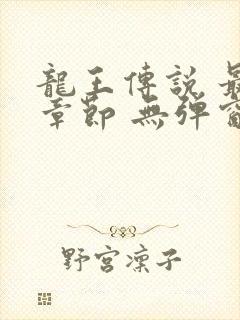 龍王傳說
章節 無彈
野宮凜子